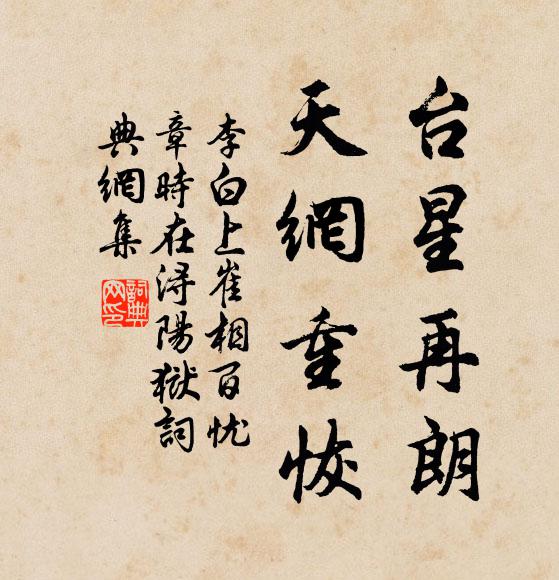 台星再朗
天網重恢
李白上崔相百忧
章時在浔陽獄詞
典網集
詞典網印